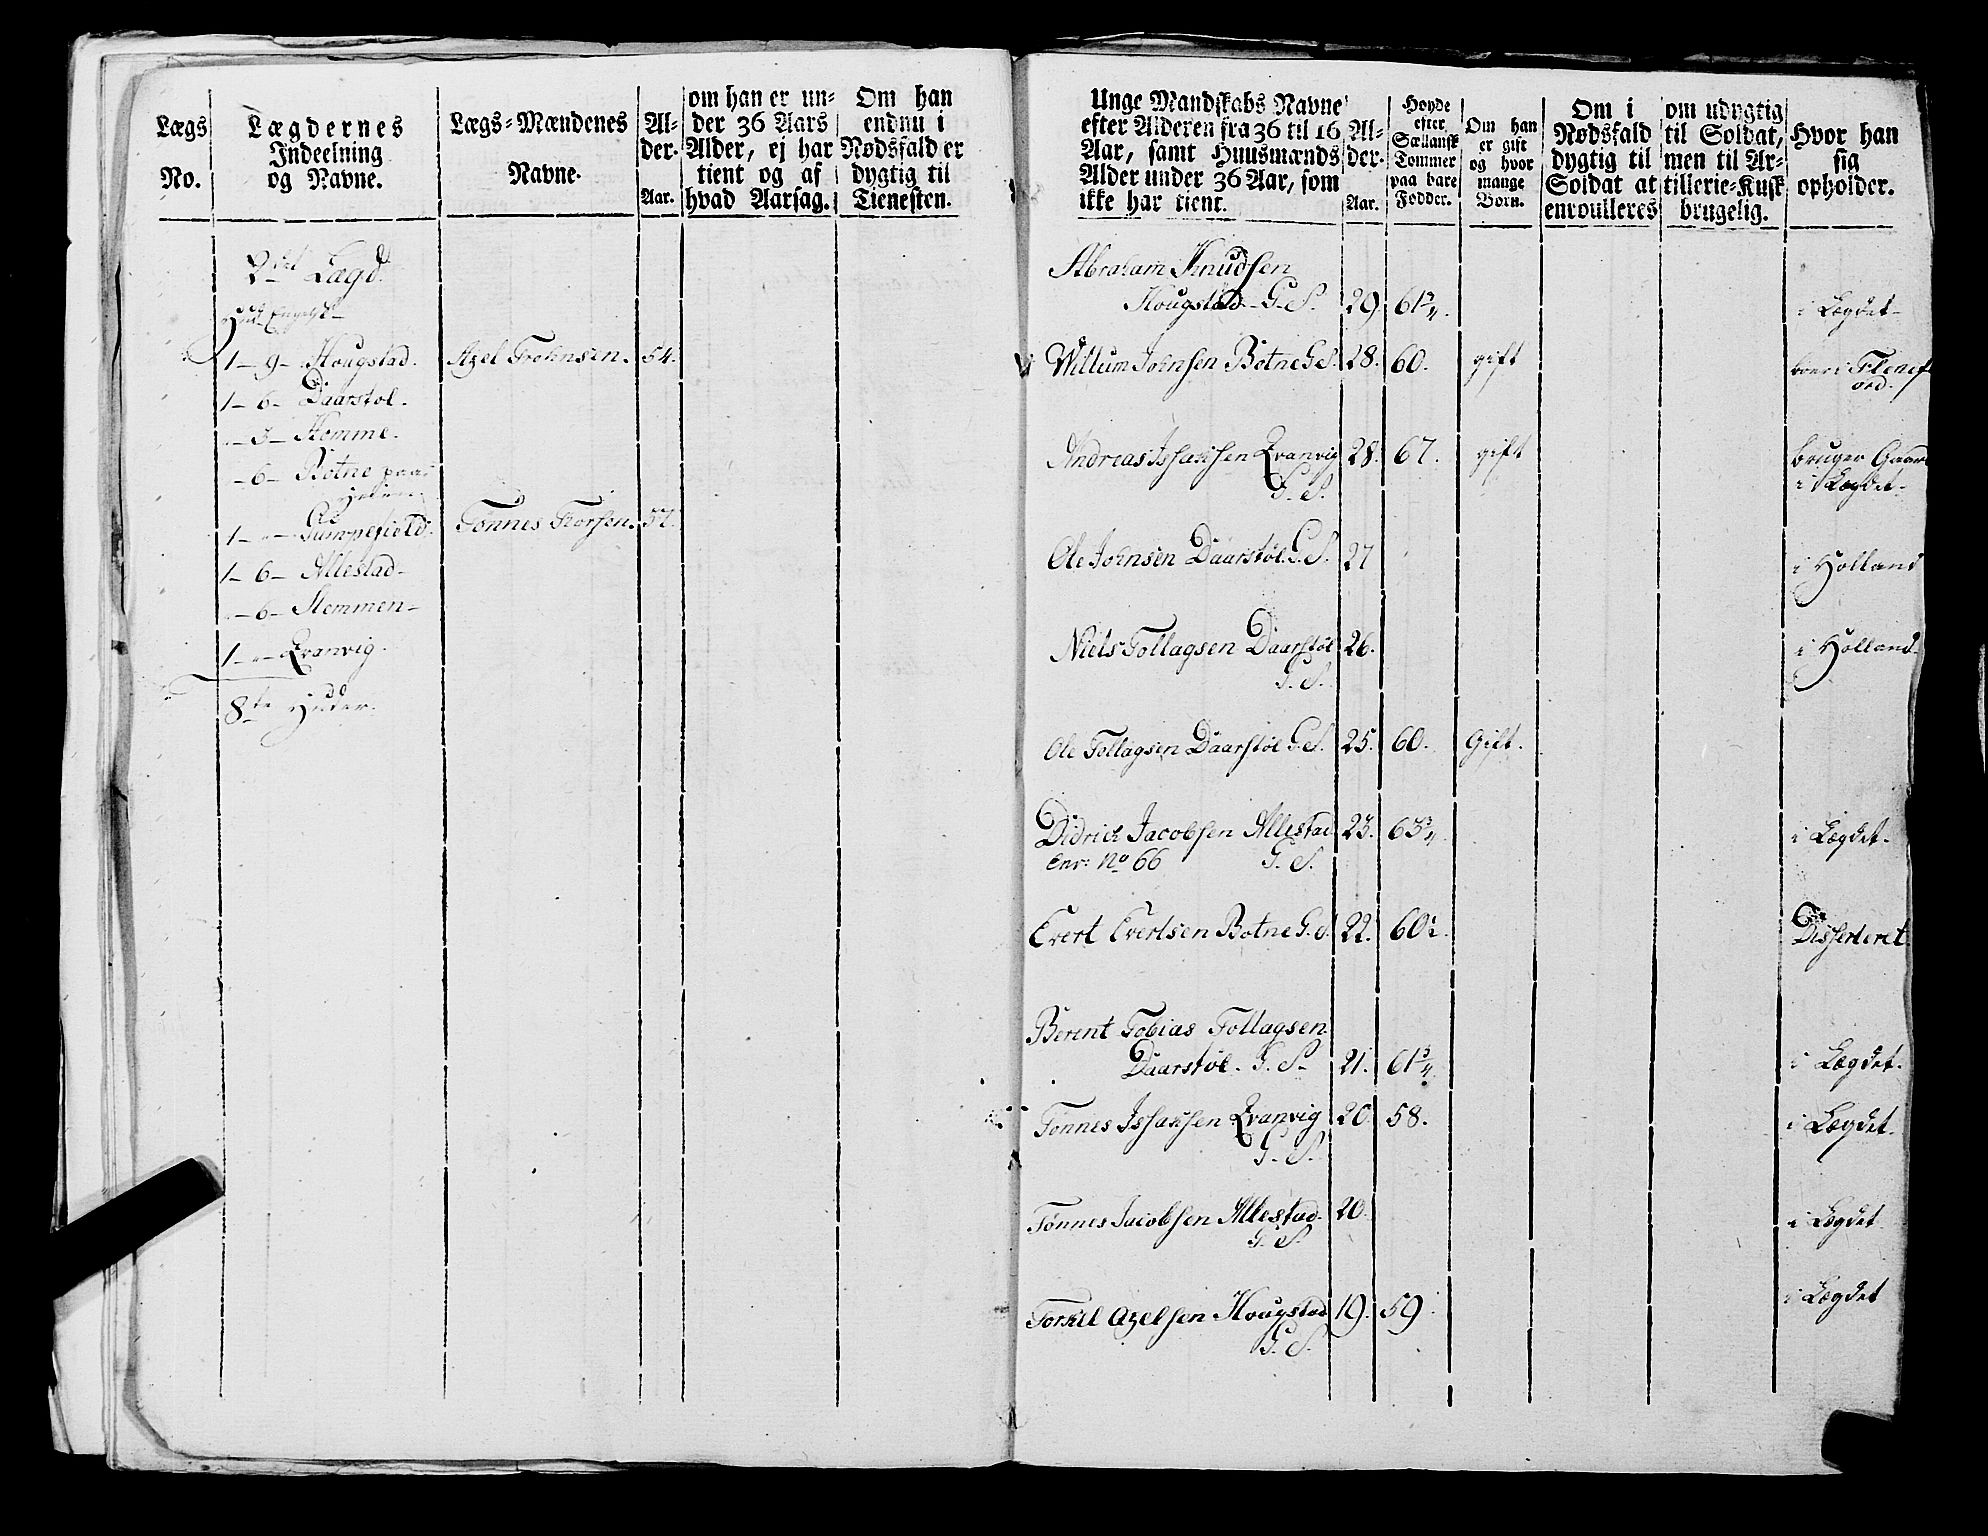 Lægs
No.
Lægdernes
Indeelning
og Navne.
Lægs-Mændenes
Navne.
Al-
der.
Aar.
om han er un-
der 36 Aars
Alder, ej har
tient og af
hvad Aarsag.
Om han
endnu i
Nødsfald er
dygtig til
Tienesten.
2det Lægd.
1 - 9 - Hougstad.
Axel Trohnsen. 54.
1 - 6 - Daarstøl.
- 3 - Homme.
- 6 - Botne paa
1 - " - Gumpefield.
Tønnes Torsen. 57.
1 - 6 - Allestad.
- 6 - Stemmen
1 - " - Qvanvig.
8te Huder.
Unge Mandskabs Navne
efter Alderen fra 36 til 16
Aar, samt Huusmænds
Alder under 36 Aar, som
ikke har tient.
Al-
der.
Aar.
Høyde
efter
Siællansk
Tommer
paa bare
Fødder.
Om han
er gift
og hvor
mange
Børn.
Om i
Nødsfald
dygtig til
Soldat at
enroulleres
om udygtig
til Soldat,
men til Ar-
tillerie-Kusk
brugelig.
Hvor han
sig
opholder.
Abraham Knudsen
Hougstad G. S. 29. 61 3/4. i Lægdet
Willum Johnsen Botne G. S. 28. 60. gift boer i Flecke-
ord.
Andreas Issachsen Qvanvig 28. 67. gift bruger Gaard
G. S. i Lægdet
Ole Johnsen Daarstøl G. S. 27 i Holland
Niels Tollagsen Daarstøl 26. i Holland
G. S.
Ole Tollagsen Daarstøl G. S. 25. 60. Gift.
Didrich Jacobsen Allestad 23. 63 3/4 i Lægdet.
Enr: No 66 G. S.
Evert Evertsen Botne G. S. 22. 60 1/2. Disserteret
Berent Tobias Tollagsen
Daarstøl. G. S. 21. 61 3/4. i Lægdet.
Tønnes Issachsen Qvanvig 20. 58. i Lægdet.
G. S.
Tønnes Jacobsen Allestad. 20. i Lægdet
G. S.
Torkel Axelsen Hougstad 19. 59. i Lægdet
G. S.